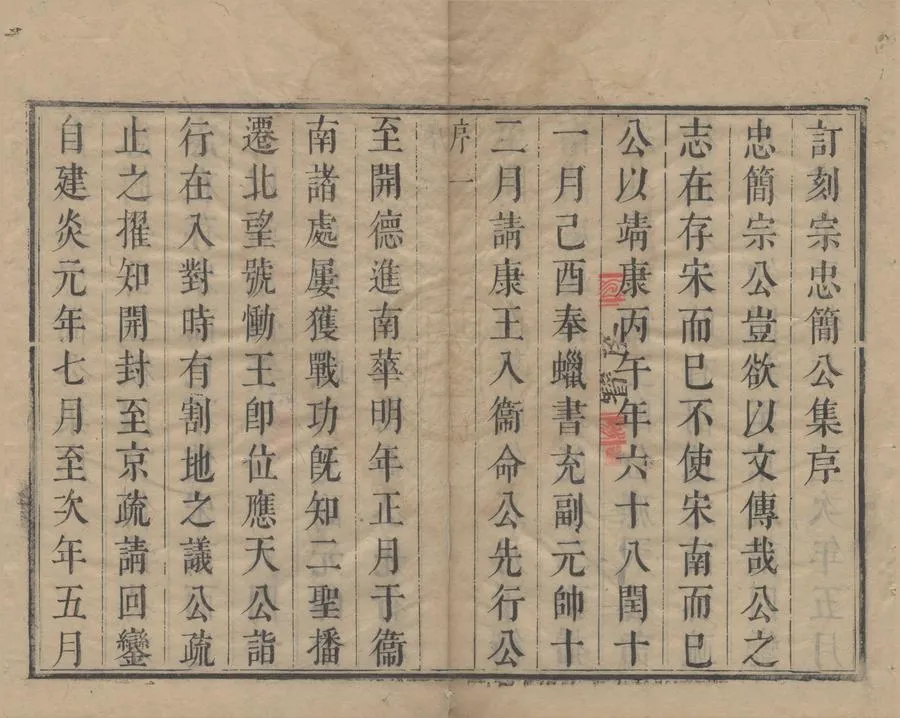 訂刻宗忠簡公集序
忠簡宗公豈欲以文傳哉公之
志在存宋而已不使宋南而已
公以靖康丙午年六十八閏十
一月己酉奉蠟書充副元帥十
二月請康王入衞命公先行公
序 一
至開德進南華明年正月于衞
南諸處屢獲戰功旣知二聖播
遷北望號慟王卽位應天公詣
行在入對時有割地之議公疏
止之擢知開封至京疏請回鑾
自建炎元年七月至次年五月